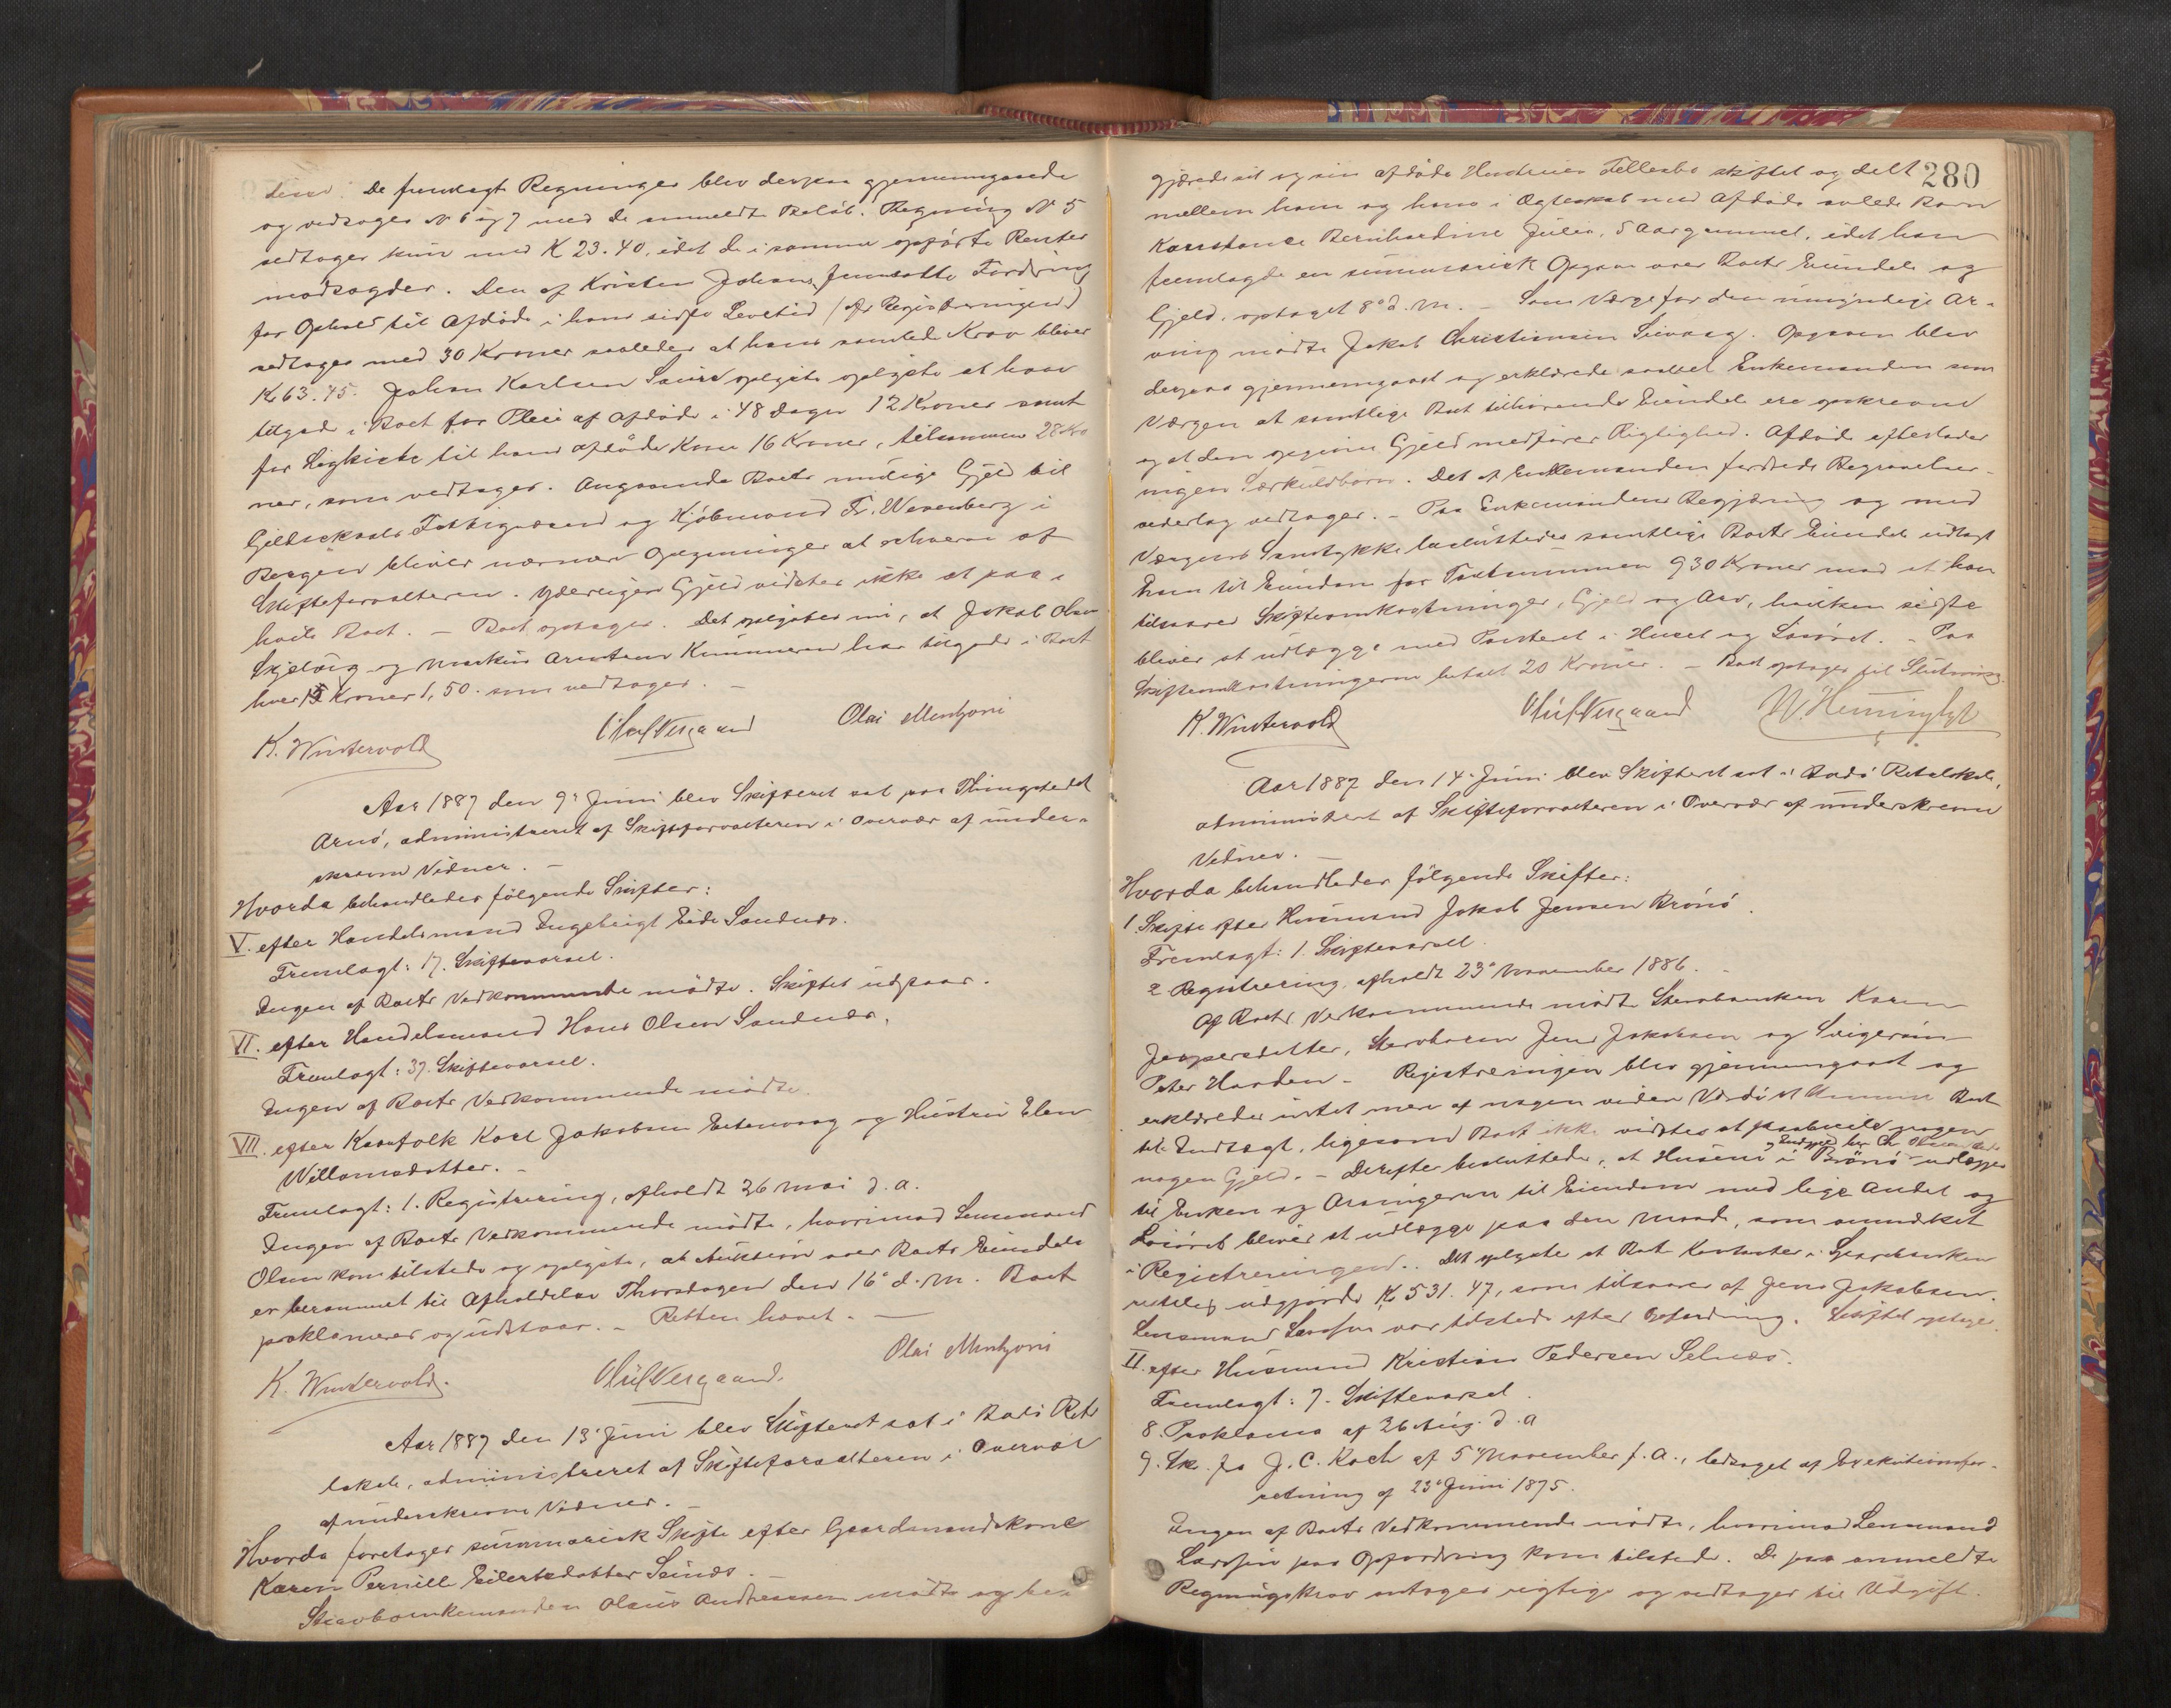 De fremlagte Regninger blev derpaa gjennemgaaede
og vedtoges No 6 og 7 med de anmeldte Beløb. Regning No 5
vedtoges kun med K 23.40, idet de i samme opførte Renter
modsagdes. Den af Kristen Johans. fremsatte Fordring
for Ophold til Afdøde i hans sidste Levetid (cfr Registreringen)
vedtoges med 30 Kroner saaledes at hans samlede Krav bliver
Kr 63.45. Johan Karlsen oplyste oplyste at have
tilgode i Boet for Pleie af Afdøde i 48 Dage 12 Kroner samt
for Ligkiste til hans afdøde Kone 16 Kroner, tilsammen 28 Kro
ner, som vedtoges. Angaaende Boets mulige Gjeld til
Gildeskaals Fattigvæsen og Kjøbmand Fr. Wesenberg i
Bergen bliver nærmere Oplysninger at erhverve af
Skifteforvalteren. Yderligere Gjeld vidstes ikke at paa-
hvile Boet. – Boet optages. Det oplystes nu, at Jakob Olsen
og Markus Arntsen har tilgode i Boet
hver Kroner 1,50. som vedtoges. –
K. Wintervold Oluf Vesgaard Olai Mentzoni
Aar 1887 den 9de Juni blev Skifteret sat paa Thingstedet
Arnø, administreret af Skifteforvalteren i Overvær af under-
skrevne Vidner. –
Hvorda behandledes følgende Skifter:
V. efter Handelsmand Ingebrigt Eide Sandnæs.
Fremlagt: 17. Skiftevarsel.
Ingen af Boets Vedkommende mødte. Skiftet udstaar.
VI. efter Handelsmand Hans Olsen Sandnæs.
Fremlagt: 37. Skiftevarsel.
Ingen af Boets Vedkommende mødte.
VII. efter Kaarfolk Karl Jakobsen og Hustru Elen
Willomsdatter. –
Fremlagt: 1. Registrering, afholdt 26 Mai d. a.
Ingen af Boets Vedkommende mødte, hvorimod Lensmand
Olsen kom tilstede og oplyste, at Auktion over Boets Eiendele
er berammet til Afholdelse Thorsdagen den 16de d. M. Boet
proklameres og udstaar. – Retten hævet. –
K. Wintervold. Oluf Vesgaard. Olai Mentzoni
Aar 1887 den 13de Juni blev Skifteret sat i Bodø Rets
lokale, administreret af Skifteforvalteren i Overvær
af underskrevne Vidner. –
Hvorda foretoges summarisk Skifte efter Gaardmandskone
Karen Pernille Eilertsdatter Seines. –
Stervboenkemanden Olaus Andreassen mødte og be-
280
gjærede sit og sin afdøde Hustrues Fællesbo skiftet og delt
mellem ham og hans i Ægteskab med Afdøde avlede Barn
Konstance Bernhardine Julie, 5 Aar gammel, idet han
fremlagde en summarisk Opgave over Boets Eiendele og
Gjeld, optaget 8de d. M. – Som Værge for den umyndige Ar-
ving mødte Jakob Christiansen. Opgaven blev
derpaa gjennemgaaet og erklærede saavel Enkemanden som
Værgen at samtlige Boet tilhørende Eiendele ere opskrevne
og at den opgivne Gjeld medfører Rigtighed. Afdøde efterlader
ingen Særkuldbørn. Det af Enkemanden fordrede Begravelses-
vederlag vedtoges. – Paa Enkemandens Begjæring og med
Værgens Samtykke besluttedes samtlige Boets Eiendele udlagt
ham til Eiendom for Taxtsummen 930 Kroner mod at han
tilsvarer Skifteomkostninger, Gjeld og Arv, hvilken sidste
bliver at udlægge med Panteret i Huset og Løsøret. – Paa
Skifteomkostningerne betalt 20 Kroner. – Boet optages til Slutning.
K. Wintervold Oluf Vesgaard
Aar 1887 den 14de Juni blev Skifteret sat i Bodø Retslokale,
administreret af Skifteforvalteren i Overvær af underskrevne
Vidner. –
Hvorda behandledes følgende Skifter:
1. Skifte efter Husmand Jakob Jensen Brønø.
Fremlagt: 1. Skiftevarsel.
2. Registrering, afholdt 23de November 1886. –
Af Boets Vedkommende mødte Stervboenken Karen
Jespersdatter, Stervbosøn Jens Jakobsen og Svigersøn
Peter Haarden – Registreringen blev gjennemgaaet og
erklæredes intet mere af nogen videre Værdi at kunne Boet
til Indtægt, ligesom Boet ikke vidstes at paahvile nogen
nogen Gjeld. – Derefter besluttedes, at Husene i Brønø udlægges
til Enken og Arvingerne til Eiendom med lige Andel og
Løsøret bliver at udlægge paa den Maade, som anmærket
i Registreringen. Det oplystes at Boets Kontanter i Sparebanken
rettelig udgjorde Kr 531.47, som tilsvares af Jens Jakobsen.
Lensmand Larssen var tilstede efter Opfordring. Skiftet optages.
II. efter Husmand Kristian Pedersen Selnæs.
Fremlagt: 7. Skiftevarsel.
8. Proklama af 26 Aug. d. A
9. Skr. fra J. C. Koch af 5te November f. A., ledsaget af Exekutionsfor-
retning af 23de Juni 1875.
Ingen af Boets Vedkommende mødte, hvorimod Lensmand
Larssen paa Opfordring kom tilstede. De paa anmeldte
Regningskrav antoges rigtige og vedtoges til Udgift.